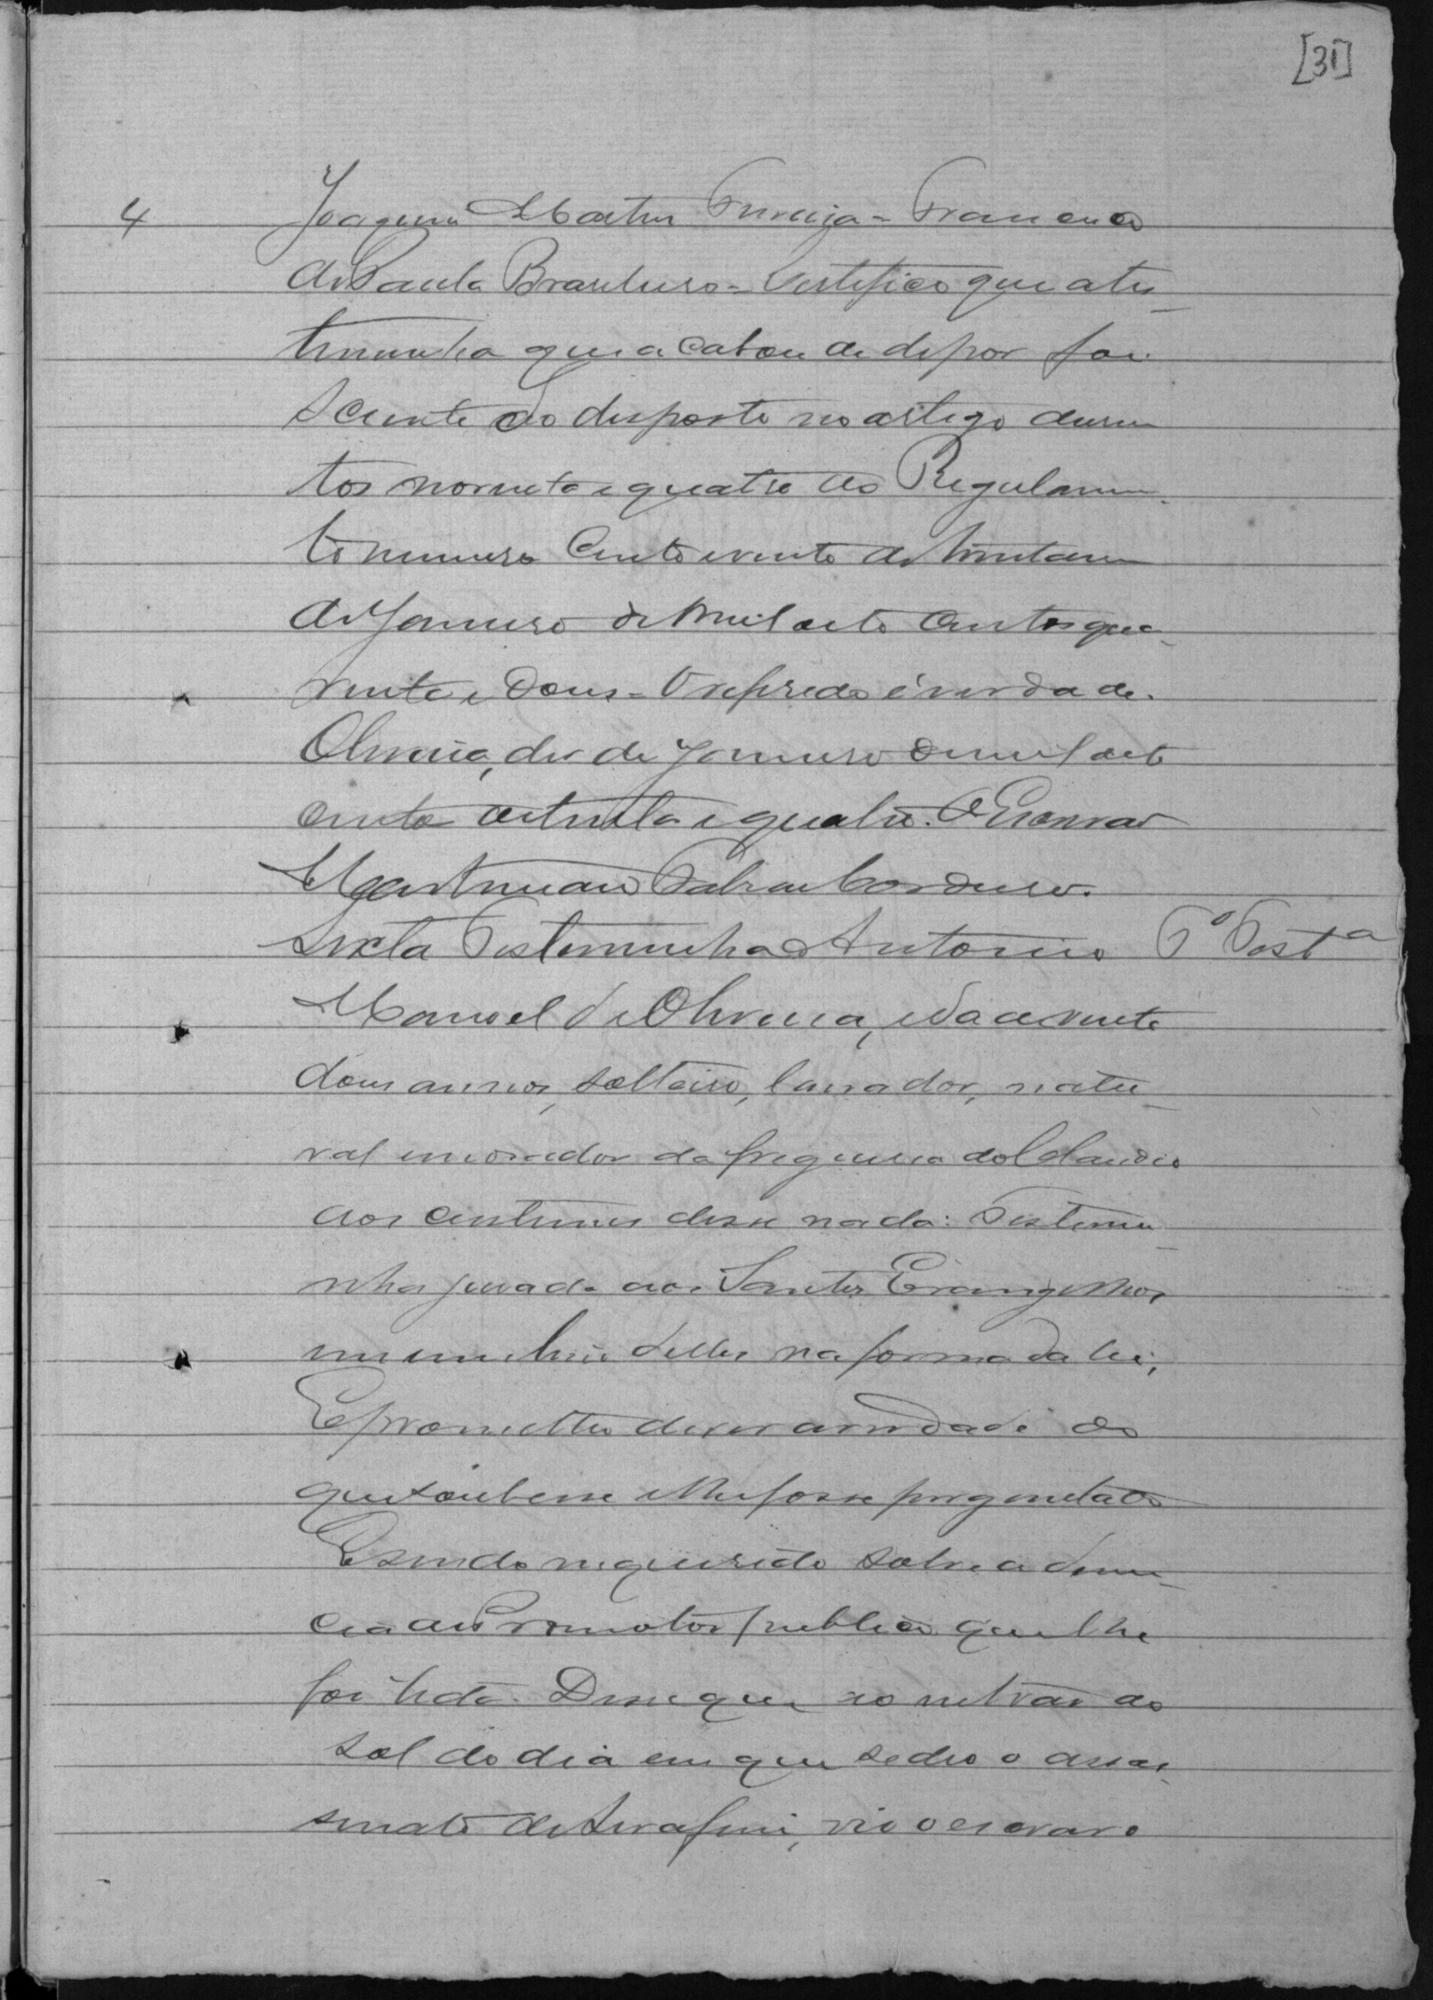 [31]
4
Joaquim Martins Ferreira = Francisco
de Paula Brasileiro = Certifico que a tes
temunha que acabou de depor foi
sciente do disposto no artigo dusen
tos noventa e quatro do Regulamen
to numero cento e vinte de trinta e um
de Janeiro de mil oito centos qua
renta e dous = O referido é verdade.
Oliveira, de Janeiro de mil oito
cento oitenta e quatro. O Escrivão
Cordeiro.
Sexta Testemunha Antonio
6ª Testª
Manoel de Oliveira, idade vinte
dous annos, solteiro, lavrador, natu
ral e morador da freguesia do Claudio
aos custumes disse nada: Testemu
nha jurada aos Santos Evangelhos
em um livro delles na forma da lei;
E prometteu diser a verdade do
que soubesse e lhe fosse perguntado
E sendo inquerido sobre a denun
cia do Promotor publico que lhe
foi lida. Disse que ao entrar do
sol do dia em que se deo o assas
sinato de Serafim, vio o escravo